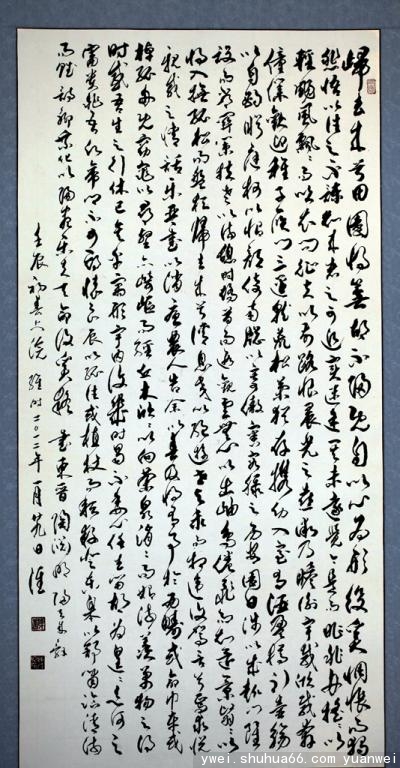 歸去來兮田園將蕪胡不歸既自以心為形役奚惆悵而獨
悲悟以往之不諫知來者之可追實迷途其未遠覺今是而昨非舟搖搖以
輕颺風飄飄而吹衣問征夫以前路恨晨光之熹微乃瞻衡宇載欣載奔
僮僕歡迎稚子候門三逕就荒松菊猶存攜幼入室有酒盈樽引壺觴
以自酌眄庭柯以怡顏倚南窗以寄傲審容膝之易安園日涉以成趣門雖
設而常關策扶老以流憩時矯首而遐觀雲無心以出岫鳥倦飛而知還景翳翳以
將入撫孤松而盤桓歸去來兮請息交以絕遊世與我而相遺復駕言兮焉求悅
親戚之情話樂琴書以消憂農人告余以春及將有事於西疇或命巾車或
棹孤舟既窈窕以尋壑亦崎嶇而經丘木欣欣以向榮泉涓涓而始流羨萬物之得
時感吾生之行休已矣乎寓形宇內復幾時曷不委心任去留胡為遑遑欲何之
富貴非吾願帝鄉不可期懷良辰以孤往或植杖而耘耔登東皋以舒嘯臨清流
而賦詩聊乘化以歸盡樂夫天命復奚疑 書東晉陶淵明歸去來辭
壬辰初春上浣 維時二〇一二年一月
ywei.shuhua66.com/yuanwei